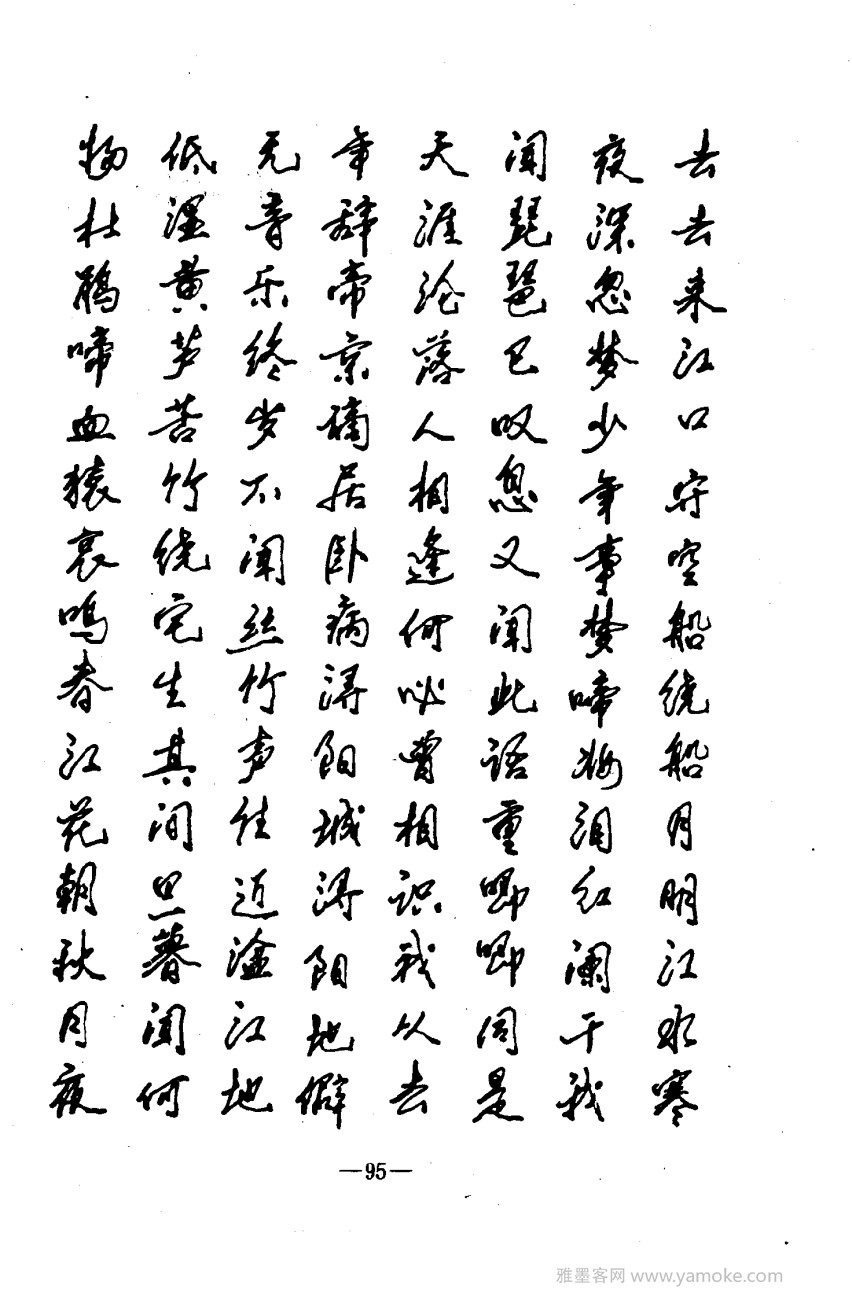 去去来江口守空船绕船月明江水寒
夜深忽梦少年事梦啼妆泪红阑干我
闻琵琶已叹息又闻此语重唧唧同是
天涯沦落人相逢何必曾相识我从去
年辞帝京谪居卧病浔阳城浔阳地僻
无音乐终岁不闻丝竹声住近湓江地
低湿黄芦苦竹绕宅生其间旦暮闻何
物杜鹃啼血猿哀鸣春江花朝秋月夜
—95—
雅墨客网 www.yamoke.com